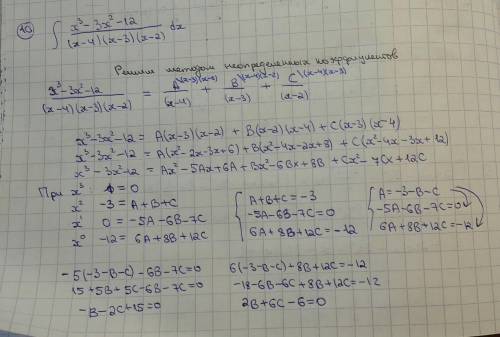 10) ∫ (x³-3x²-12)/((x-4)(x-3)(x-2)) dx
Решим методом неопределенных коэффициентов
(x³-3x²-12)/((x-4)(x-3)(x-2)) = A/(x-4) \(x-3)(x-2) + B/(x-3) \(x-4)(x-2) + C/(x-2) \(x-4)(x-3)
x³-3x²-12 = A(x-3)(x-2) + B(x-2)(x-4) + C(x-3)(x-4)
x³-3x²-12 = A(x²-2x-3x+6) + B(x²-4x-2x+8) + C(x²-4x-3x+12)
x³-3x²-12 = Ax²-5Ax+6A + Bx²-6Bx+8B + Cx²-7Cx+12C
При x³ 1=0
x² -3=A+B+C
x¹ 0=-5A-6B-7C
x⁰ -12=6A+8B+12C
{ A+B+C=-3
-5A-6B-7C=0
6A+8B+12C=-12
{ A=-3-B-C
-5A-6B-7C=0
6A+8B+12C=-12
-5(-3-B-C)-6B-7C=0
15+5B+5C-6B-7C=0
-B-2C+15=0
6(-3-B-C)+8B+12C=-12
-18-6B-6C+8B+12C=-12
2B+6C-6=0